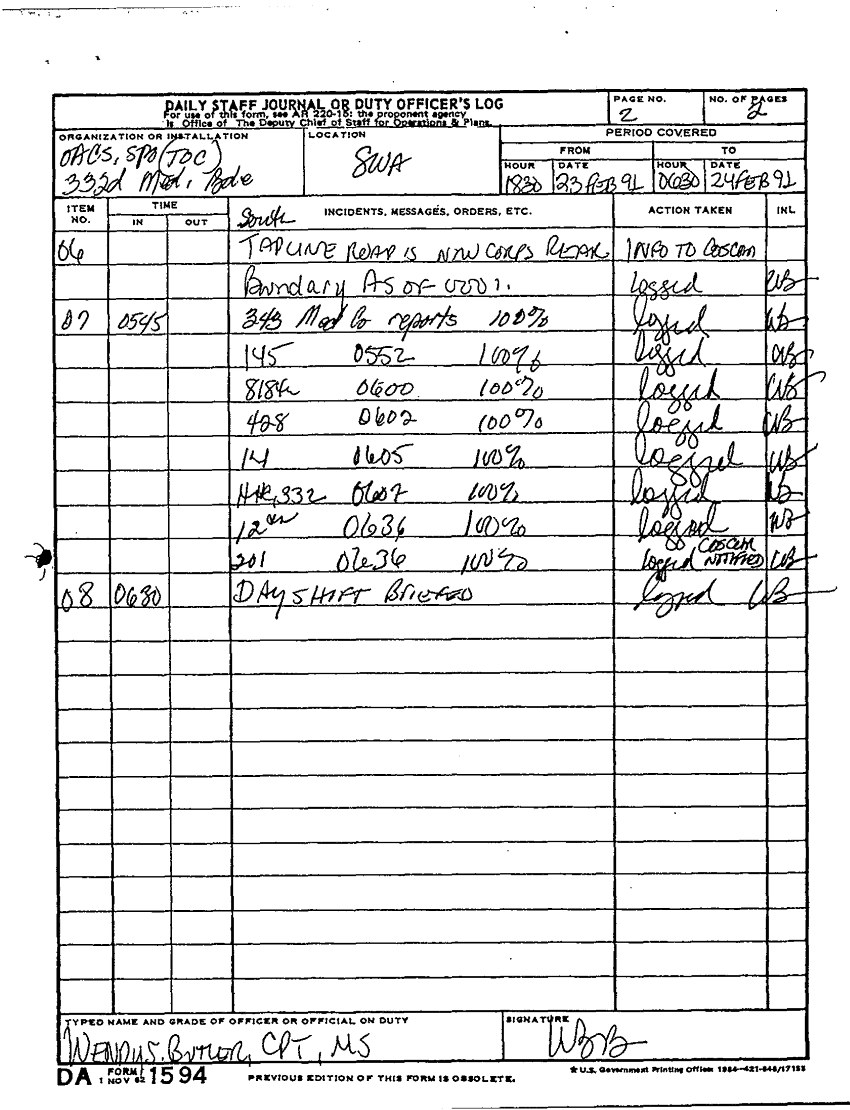 DAILY STAFF JOURNAL OR DUTY OFFICER'S LOG
For use of this form, see AR 220-15; the proponent agency
is Office of The Deputy Chief of Staff for Operations & Plans.
PAGE NO.
2
NO. OF PAGES
2
ORGANIZATION OR INSTALLATION
OACS, SPO (TOC)
332d Med, Bde
LOCATION
SWA
PERIOD COVERED
FROM TO
HOUR DATE HOUR DATE
1830 23 FEB 91 0630 24 FEB 91
ITEM NO. TIME IN OUT INCIDENTS, MESSAGES, ORDERS, ETC. ACTION TAKEN INL
South
06 TAPLINE ROAD IS NEW CORPS REAR INFO TO COSCOM
Boundary AS OF 0001. logged WB
07 0545 343 Med Co reports 100% logged WB
145 0552 100% logged WB
818th 0600 100% logged WB
428 0602 100% logged WB
14 0605 100% logged WB
HHC, 332 0607 100% logged WB
12th 0636 100% logged WB
201 0636 100% logged COSCOM NOTIFIED WB
08 0630 DAY SHIFT BRIEFED logged WB
TYPED NAME AND GRADE OF OFFICER OR OFFICIAL ON DUTY
WENDY S. BUTLER, CPT, MS
SIGNATURE
WBB
DA FORM 1594
1 NOV 62
PREVIOUS EDITION OF THIS FORM IS OBSOLETE.
★ U.S. Government Printing Office: 1984-421-646/17155